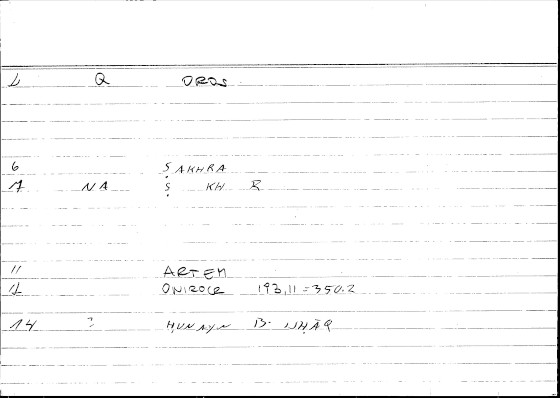 L Q OROS
6 ṢAKHRA
7 NA Ṣ KH R
11 ARTEM
12 ONIROCR 193,11 = 350.2
14 ? ḤUNAYN B. ISḤĀQ